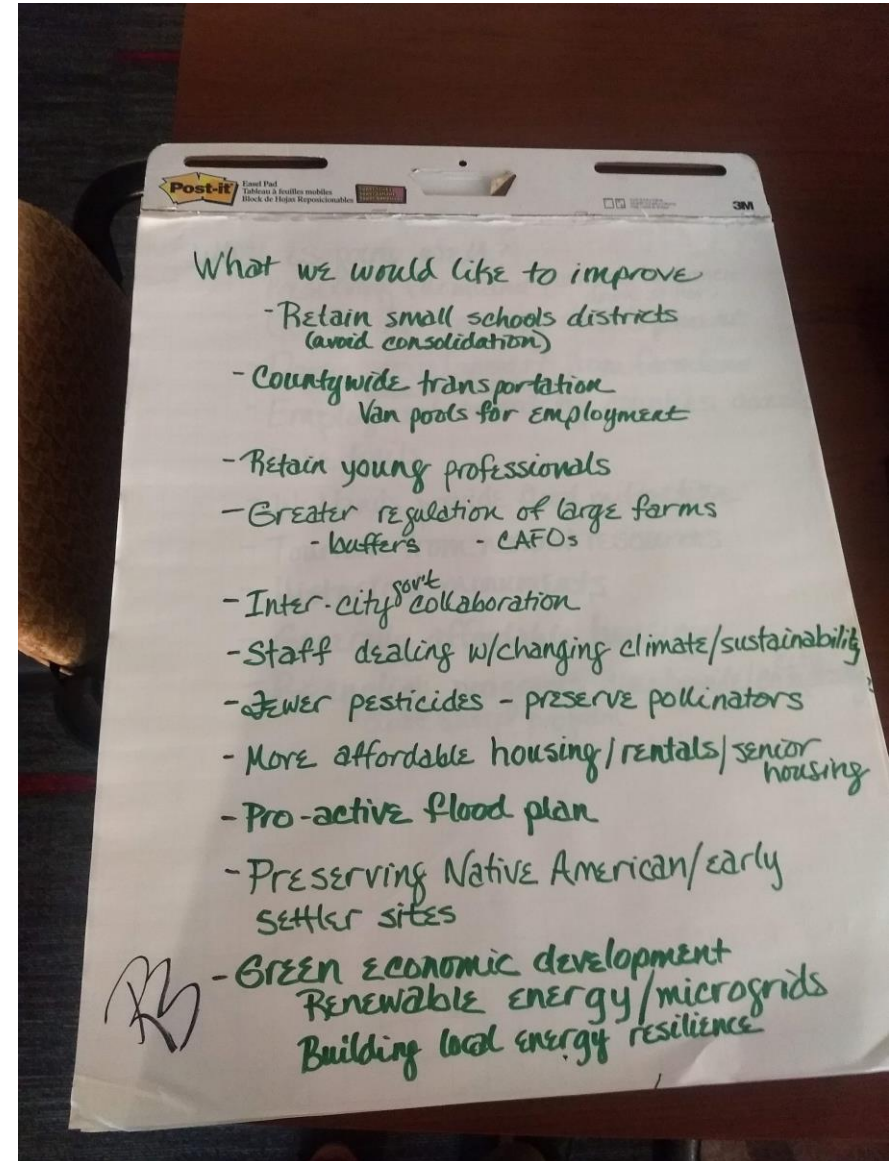 Post-it
Easel Pad
Tableau à feuilles mobiles
Block de Hojas Reposicionables
3M
What we would like to improve
- Retain small schools districts
(avoid consolidation)
- Countywide transportation
Van pools for employment
- Retain young professionals
- Greater regulation of large farms
- buffers - CAFOs
- Inter-city gov't collaboration
- Staff dealing w/changing climate/sustainability
- Fewer pesticides - preserve pollinators
- More affordable housing/rentals/senior
housing
- Pro-active flood plan
- Preserving Native American/early
settler sites
- Green economic development
Renewable energy/microgrids
Building local energy resilience